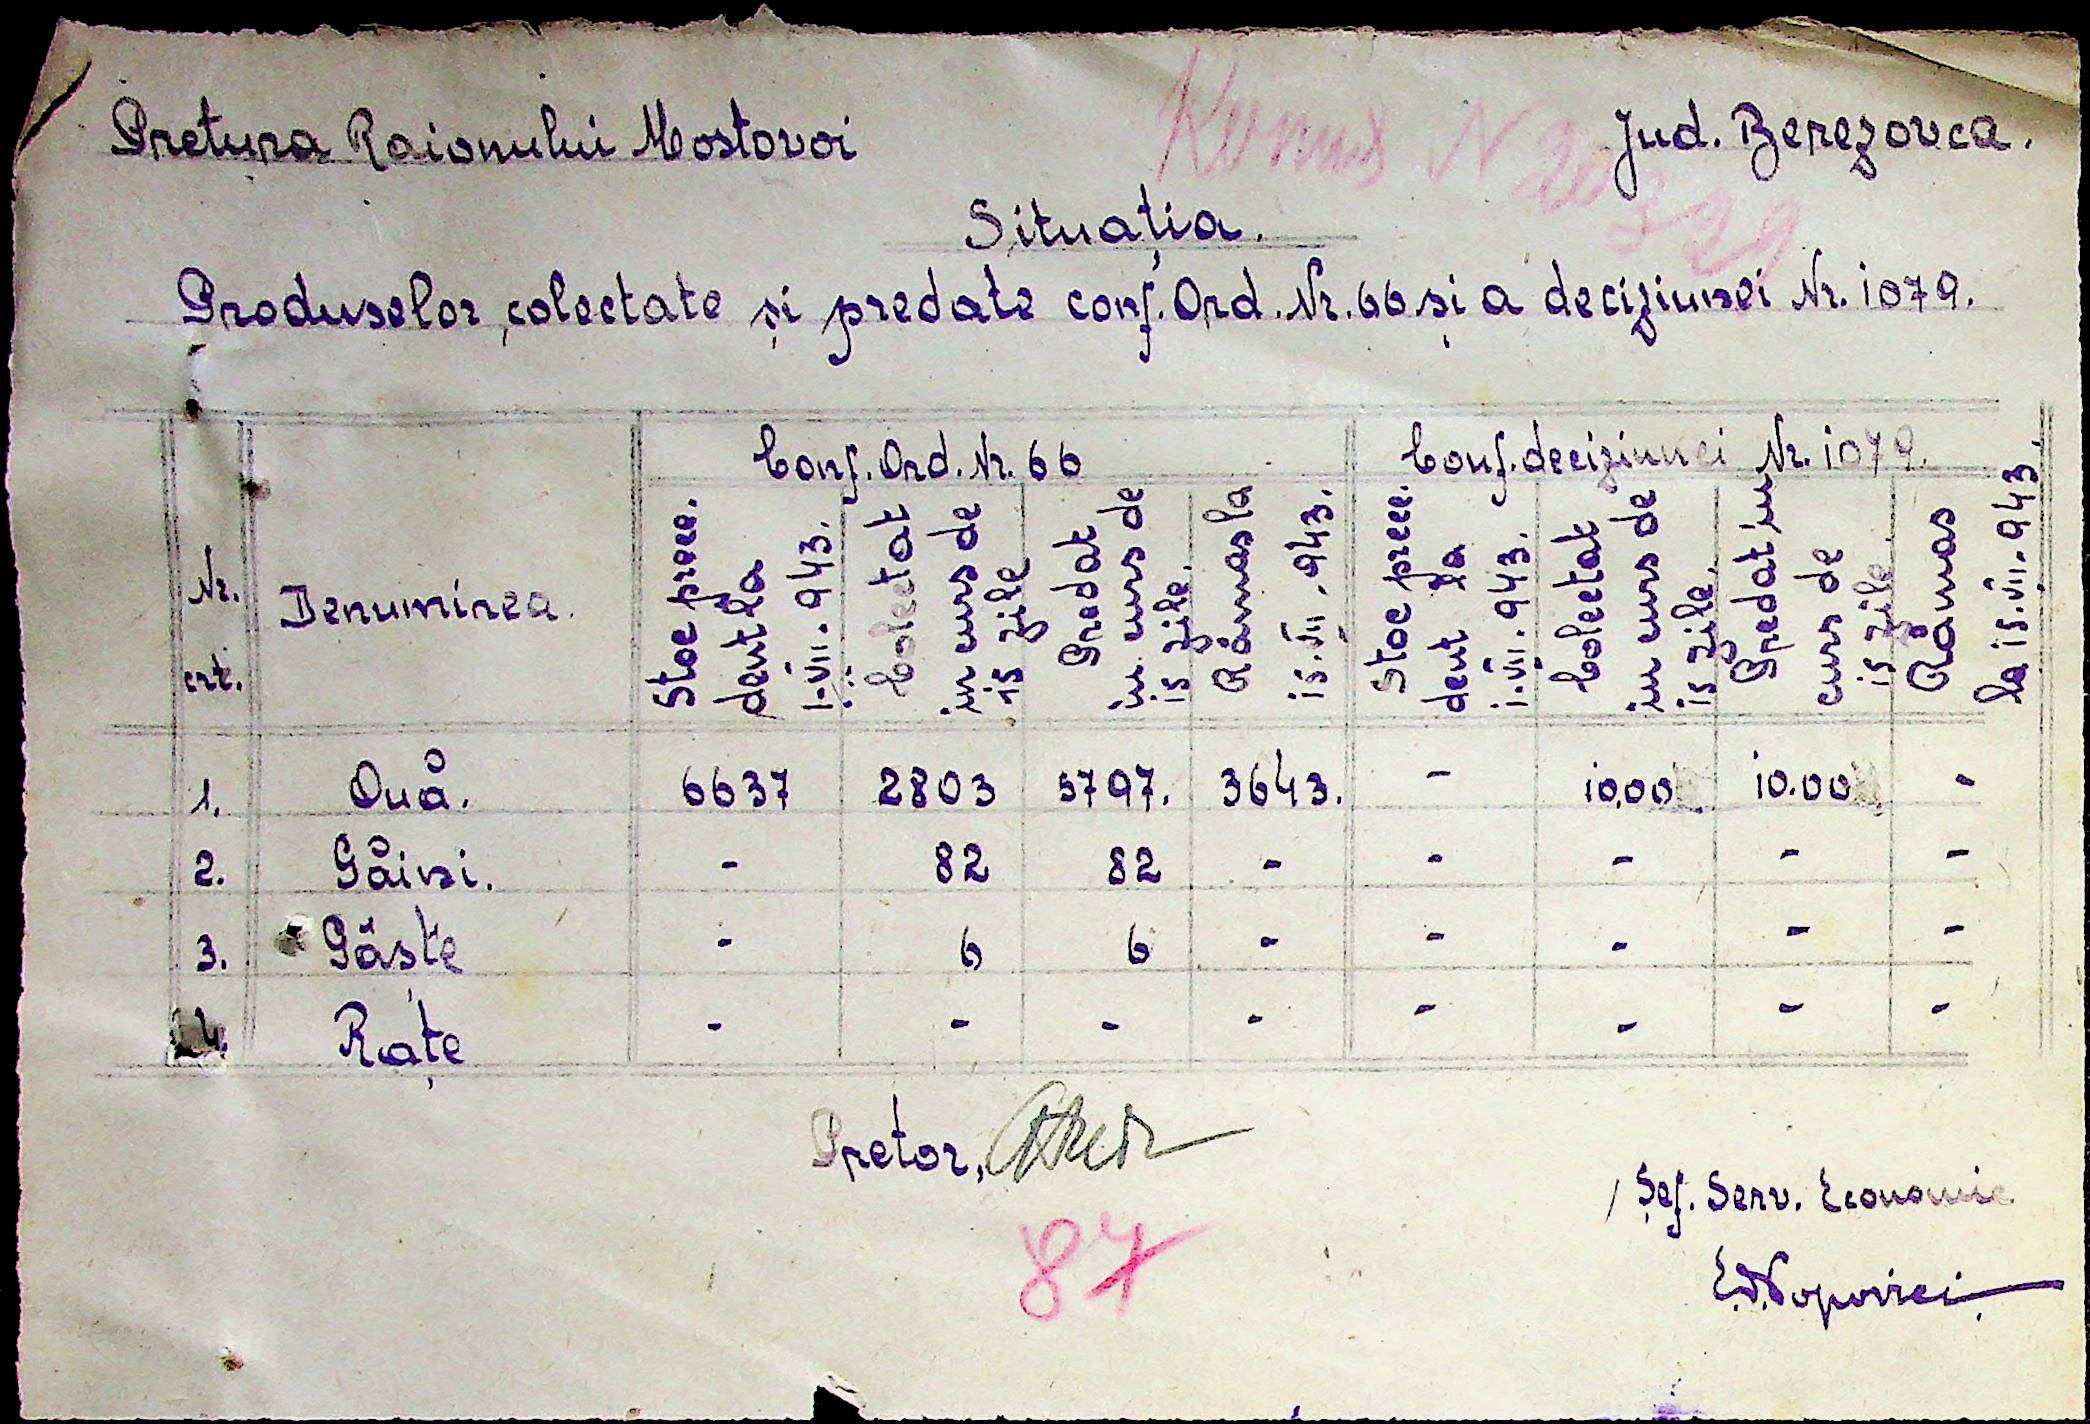 Pretura Raionului Mostovoi
Jud. Berezovca.
Situația.
Produselor colectate și predate conf. Ord. Nr. 66 și a deciziunei Nr. 1079.
Nr. crt. Denuminea. Conf. Ord. Nr. 66 Conf. deciziunei Nr. 1079.
Stoc prece. dent la 1.VII.943. Colectat in curs de 15 zile Predat in curs de 15 zile. Rămas la 15.VII.943. Stoc prece. dent la 1.VII.943. Colectat in curs de 15 zile. Predat in curs de 15 zile. Rămas la 15.VII.943.
1. Ouă. 6637 2803 5797. 3643. - 10.00 10.00 -
2. Găini. - 82 82 - - - - -
3. Găște - 6 6 - - - - -
4. Rațe - - - - - - - -
Pretor,
Șef. Serv. Economic
E. Popovici
87